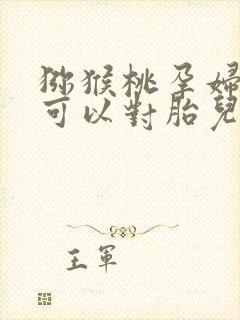 猕猴桃孕婦
可以對胎兒
王軍